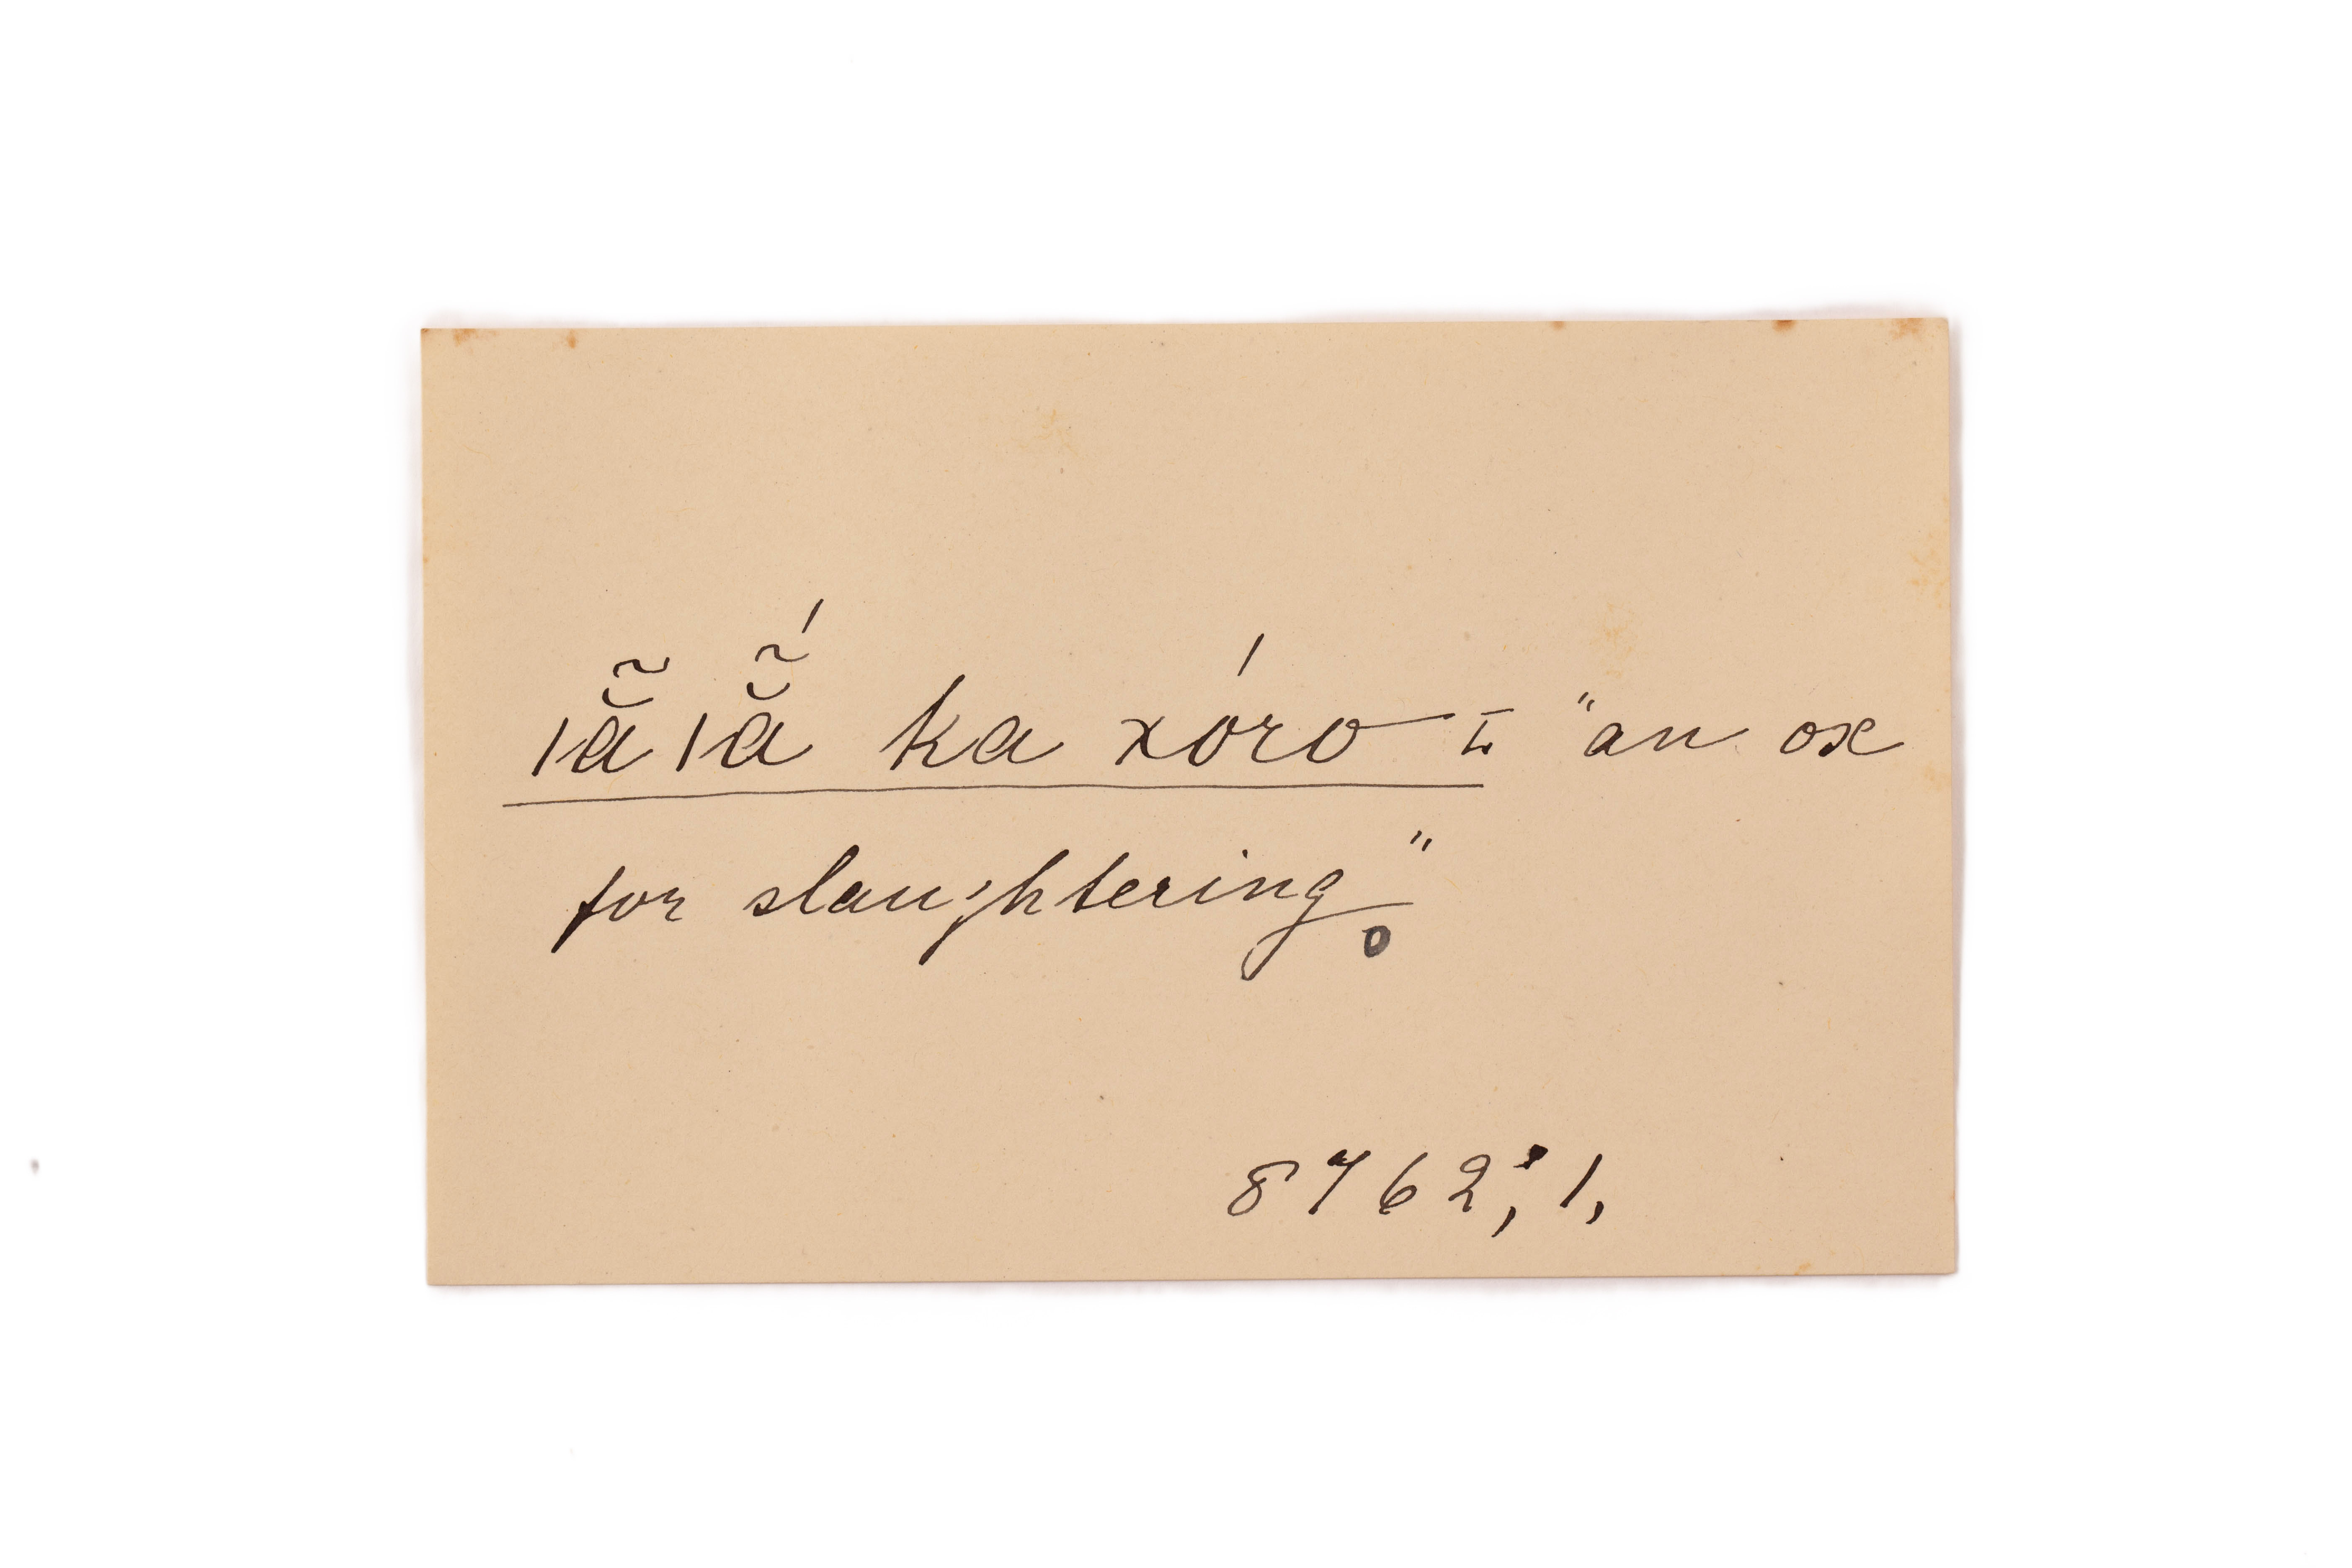 ǀẵǀẵ́ ka xóro = "an ox
for slaughtering."
8762; 1,